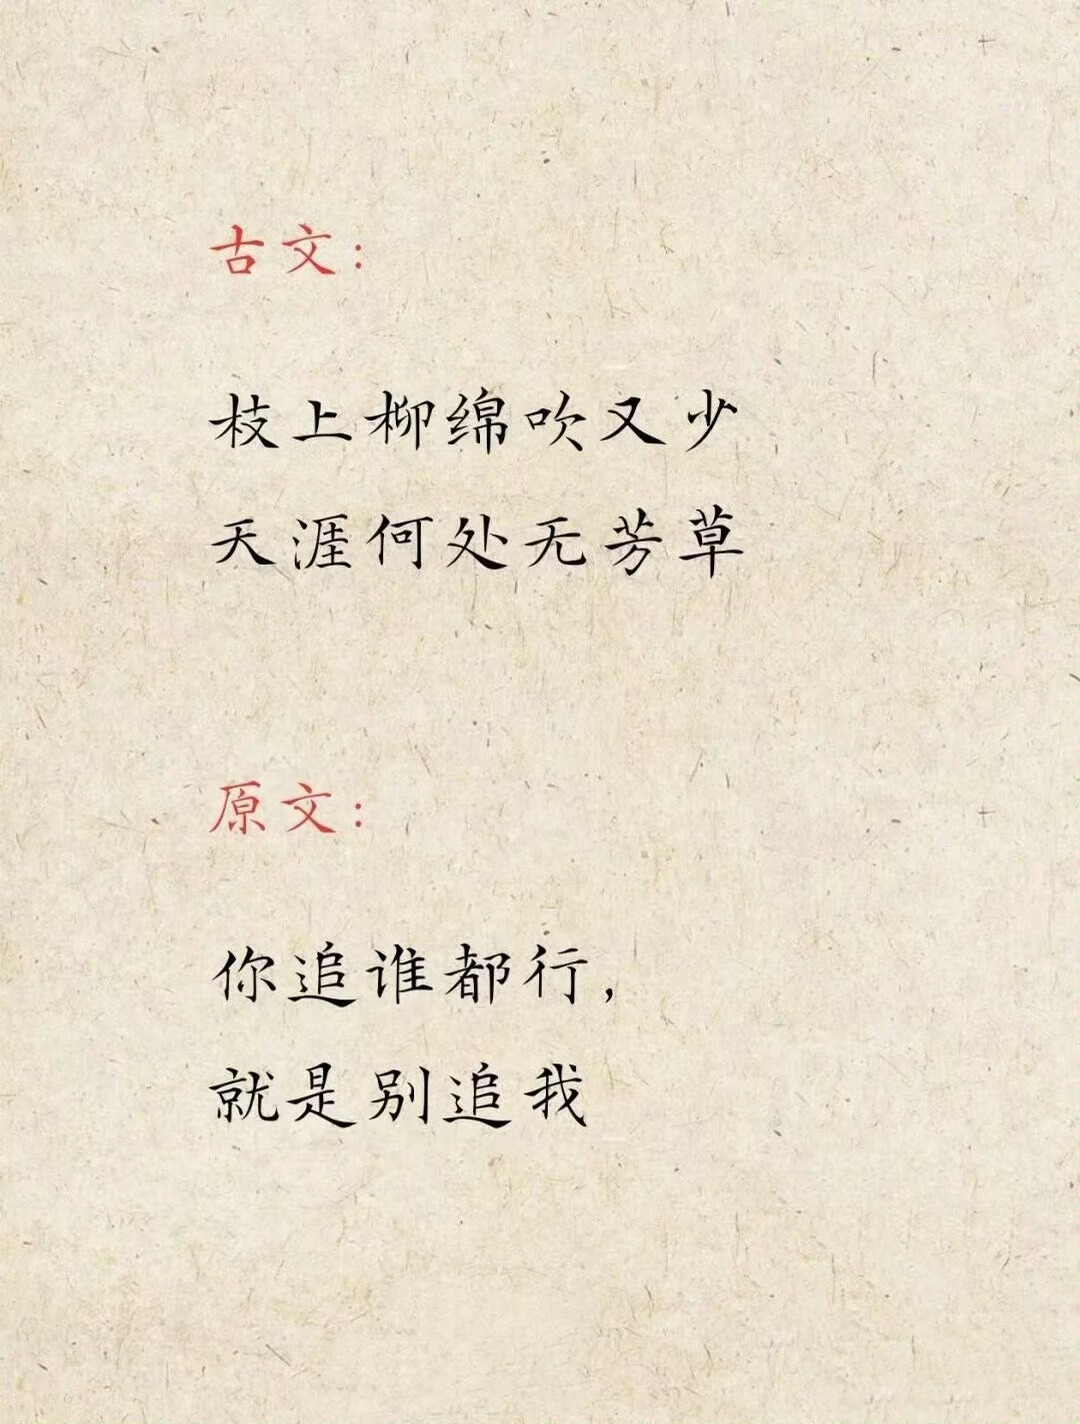 古文：
枝上柳绵吹又少
天涯何处无芳草
原文：
你追谁都行，
就是别追我